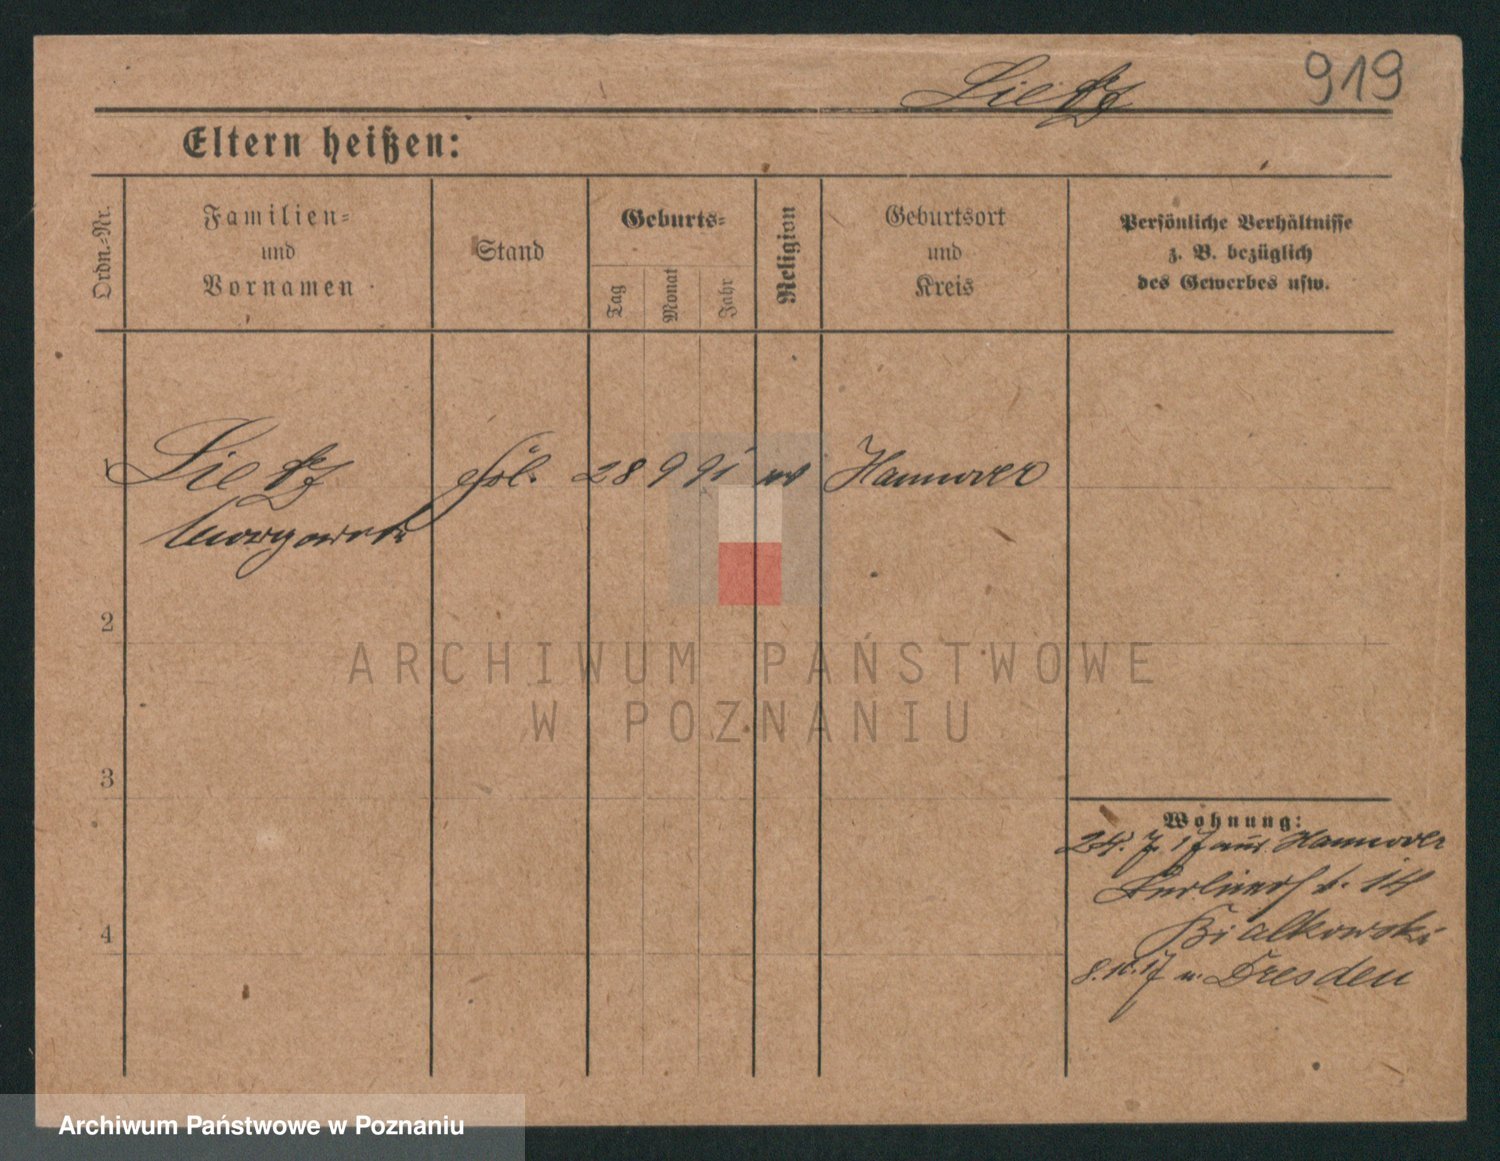 Lietz 919
Eltern heißen:
Ordn.-Nr.
Familien-
und
Vornamen
Stand
Geburts-
Tag
Monat
Jahr
Religion
Geburtsort
und
Kreis
Persönliche Verhältnisse
z. B. bezüglich
des Gewerbes usw.
1 Lietz 28 9 91 Hannover
Margarete
2
3
4
Wohnung:
24. 7. 17 aus Hannover
Berlinerst. 14
Bialkowski
8. 10. 17 n. Dresden
ARCHIWUM PAŃSTWOWE
W POZNANIU
Archiwum Państwowe w Poznaniu